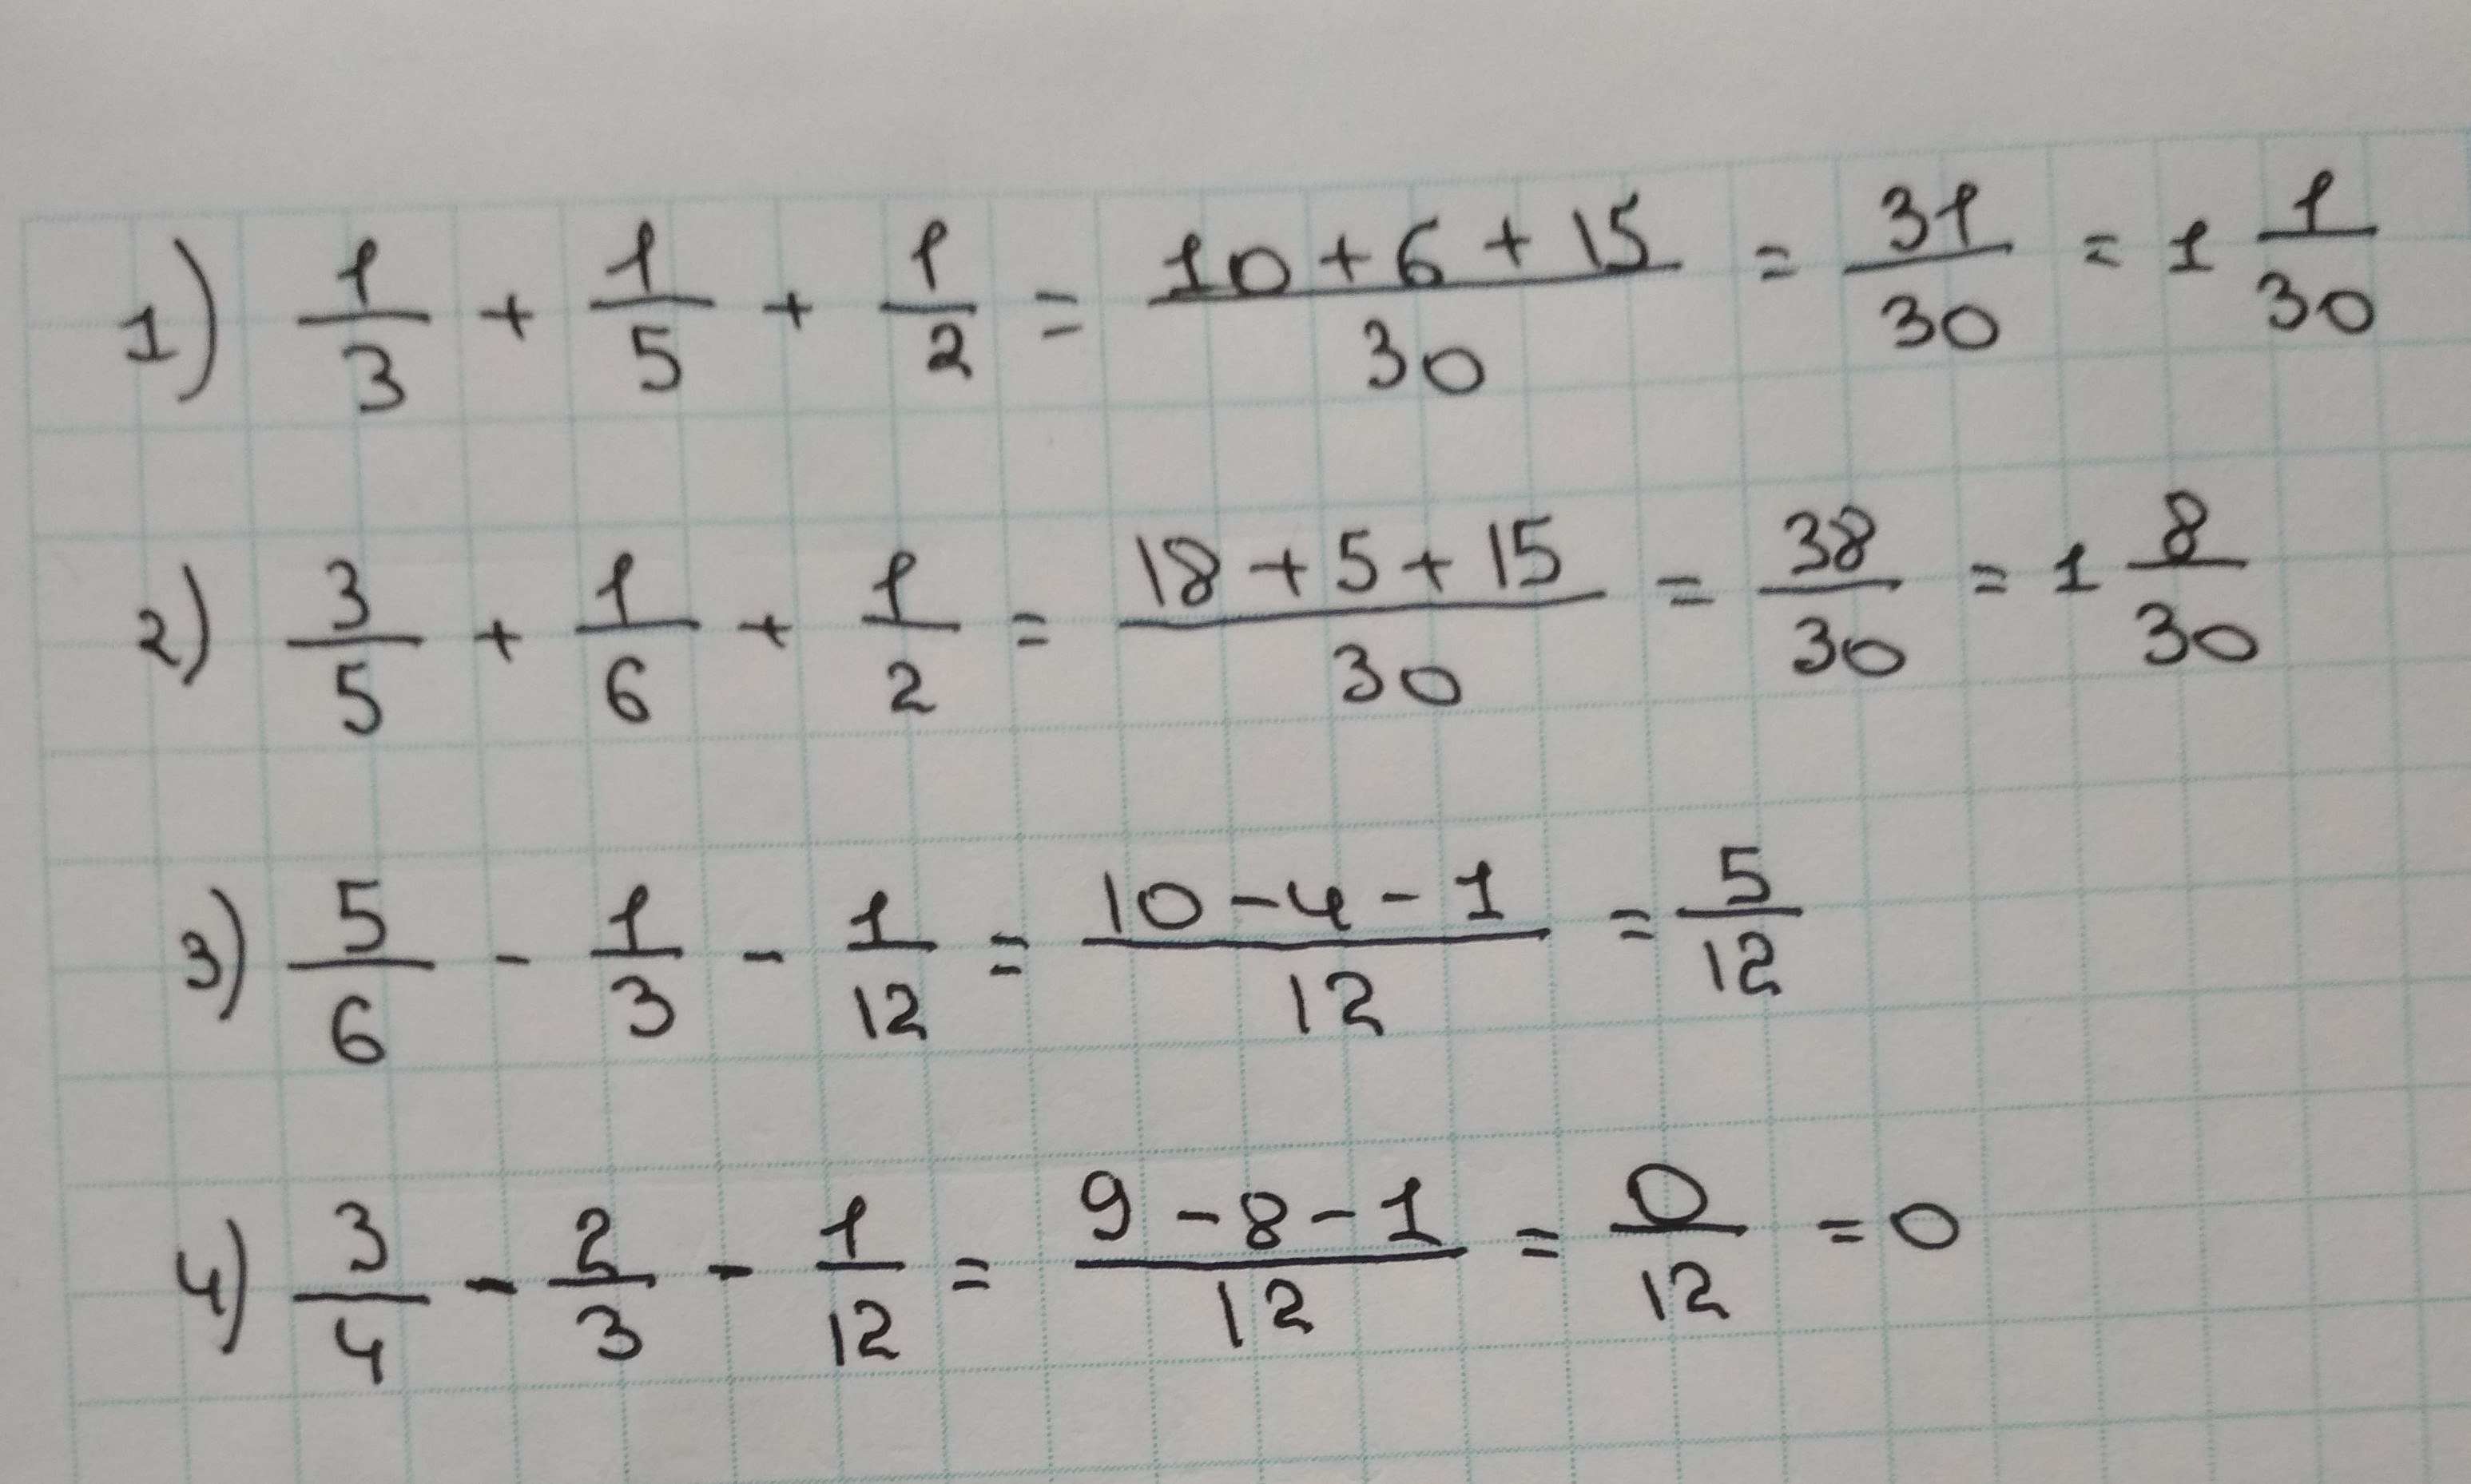 1) 1/3 + 1/5 + 1/2 = (10 + 6 + 15)/30 = 31/30 = 1 1/30
2) 3/5 + 1/6 + 1/2 = (18 + 5 + 15)/30 = 38/30 = 1 8/30
3) 5/6 - 1/3 - 1/12 = (10 - 4 - 1)/12 = 5/12
4) 3/4 - 2/3 - 1/12 = (9 - 8 - 1)/12 = 0/12 = 0